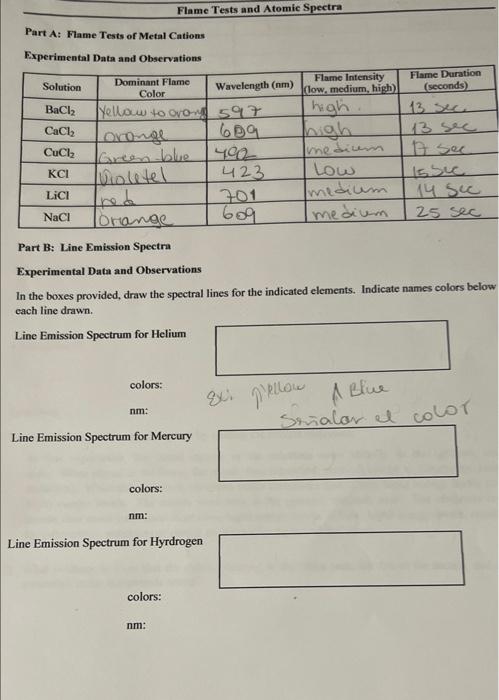 Flame Tests and Atomic Spectra
Part A: Flame Tests of Metal Cations
Experimental Data and Observations
Solution Dominant Flame Color Wavelength (nm) Flame Intensity (low, medium, high) Flame Duration (seconds)
BaCl₂ Yellow to orang 597 high. 13 sec.
CaCl₂ orange 609 high 13 sec
CuCl₂ Green-blue 492 medium 17 sec
KCl 423 Low 15 sec
LiCl red 701 medium 14 sec
NaCl orange 609 medium 25 sec
Part B: Line Emission Spectra
Experimental Data and Observations
In the boxes provided, draw the spectral lines for the indicated elements. Indicate names colors below
each line drawn.
Line Emission Spectrum for Helium
colors:
Ex: yellow Blue
nm:
Señalar el color
Line Emission Spectrum for Mercury
colors:
nm:
Line Emission Spectrum for Hyrdrogen
colors:
nm: